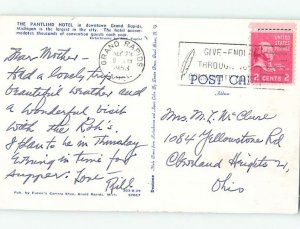 THE PANTLIND HOTEL in downtown Grand Rapids,
Michigan is the largest in the city. The hotel accom-
modates thousands of convention guests each year.
Dear Mother —
Had a lovely trip,
beautiful weather and
a wonderful visit
with the Roh's.
I plan to be in Thursday
evening in time for
supper. Love —
GRAND RAPIDS
GIVE-ENOUGH
THROUGH
UNITED STATES POSTAGE
2 CENTS 2
POST CARD
Address
Mrs. M. L. McClure
1084 Yellowstone Rd
Cleveland Heights 21,
Ohio